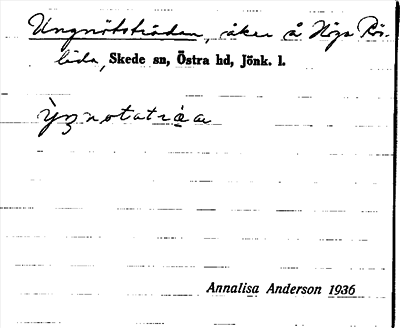 Ungnötsträden, åker å Höga Rös-
lida, Skede sn, Östra hd, Jönk. l.
Annalisa Anderson 1936